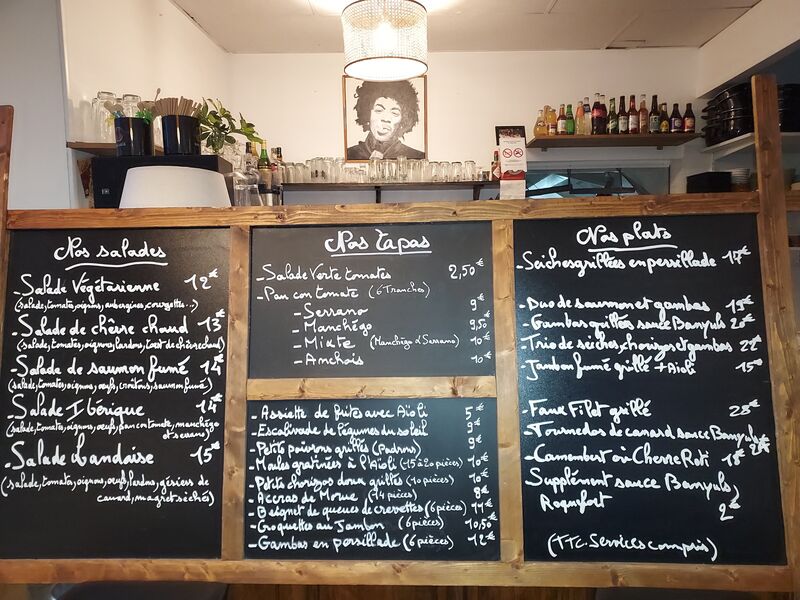 Nos salades
-Salade Végétarienne 12€
(salade, tomates, oignons, aubergines, courgettes...)
-Salade de chèvre chaud 13€
(salade, tomates, oignons, lardons, toast de chèvre chaud)
-Salade de saumon fumé 14€
(salade, tomates, oignons, œufs, croûtons, saumon fumé)
-Salade Ibérique 14€
(salade, tomates, oignons, œufs, pan con tomate, manchego
et serrano)
-Salade Landaise 15€
(salade, tomates, oignons, œufs, lardons, gésiers de
canard, magret séché)
Nos Tapas
-Salade Verte tomates 2,50€
-Pan con tomate (6 Tranches)
-Serrano 9€
-Manchégo 9,50€
-Mixte (Manchégo & Serrano) 10€
-Anchois 10€
-Assiette de frites avec Aïoli 5€
-Escalivade de légumes du soleil 9€
-Petits poivrons grillés (Padrons) 9€
-Moules gratinées à l'Aïoli (-15 à 20 pièces) 10€
-Petits chorizos doux grillés (10 pièces) 10€
-Accras de Morue (14 pièces) 8€
-Beignet de queues de crevettes (6 pièces) 11€
-Croquettes au Jambon (6 pièces) 10,50€
-Gambas en persillade (6 pièces) 12€
Nos plats
-Seiches grillées en persillade 17€
-Duo de saumon et gambas 19€
-Gambas grillées sauce Banyuls 20€
-Trio de seiches, chorizo et gambas 22€
-Jambon fumé grillé + Aïoli 15€
-Faux Filet grillé 28€
-Tournedos de canard sauce Banyuls
-Camembert ou Chèvre Roti 18€
-Supplément sauce Banyuls
Roquefort 2€
(TTC. Services compris)